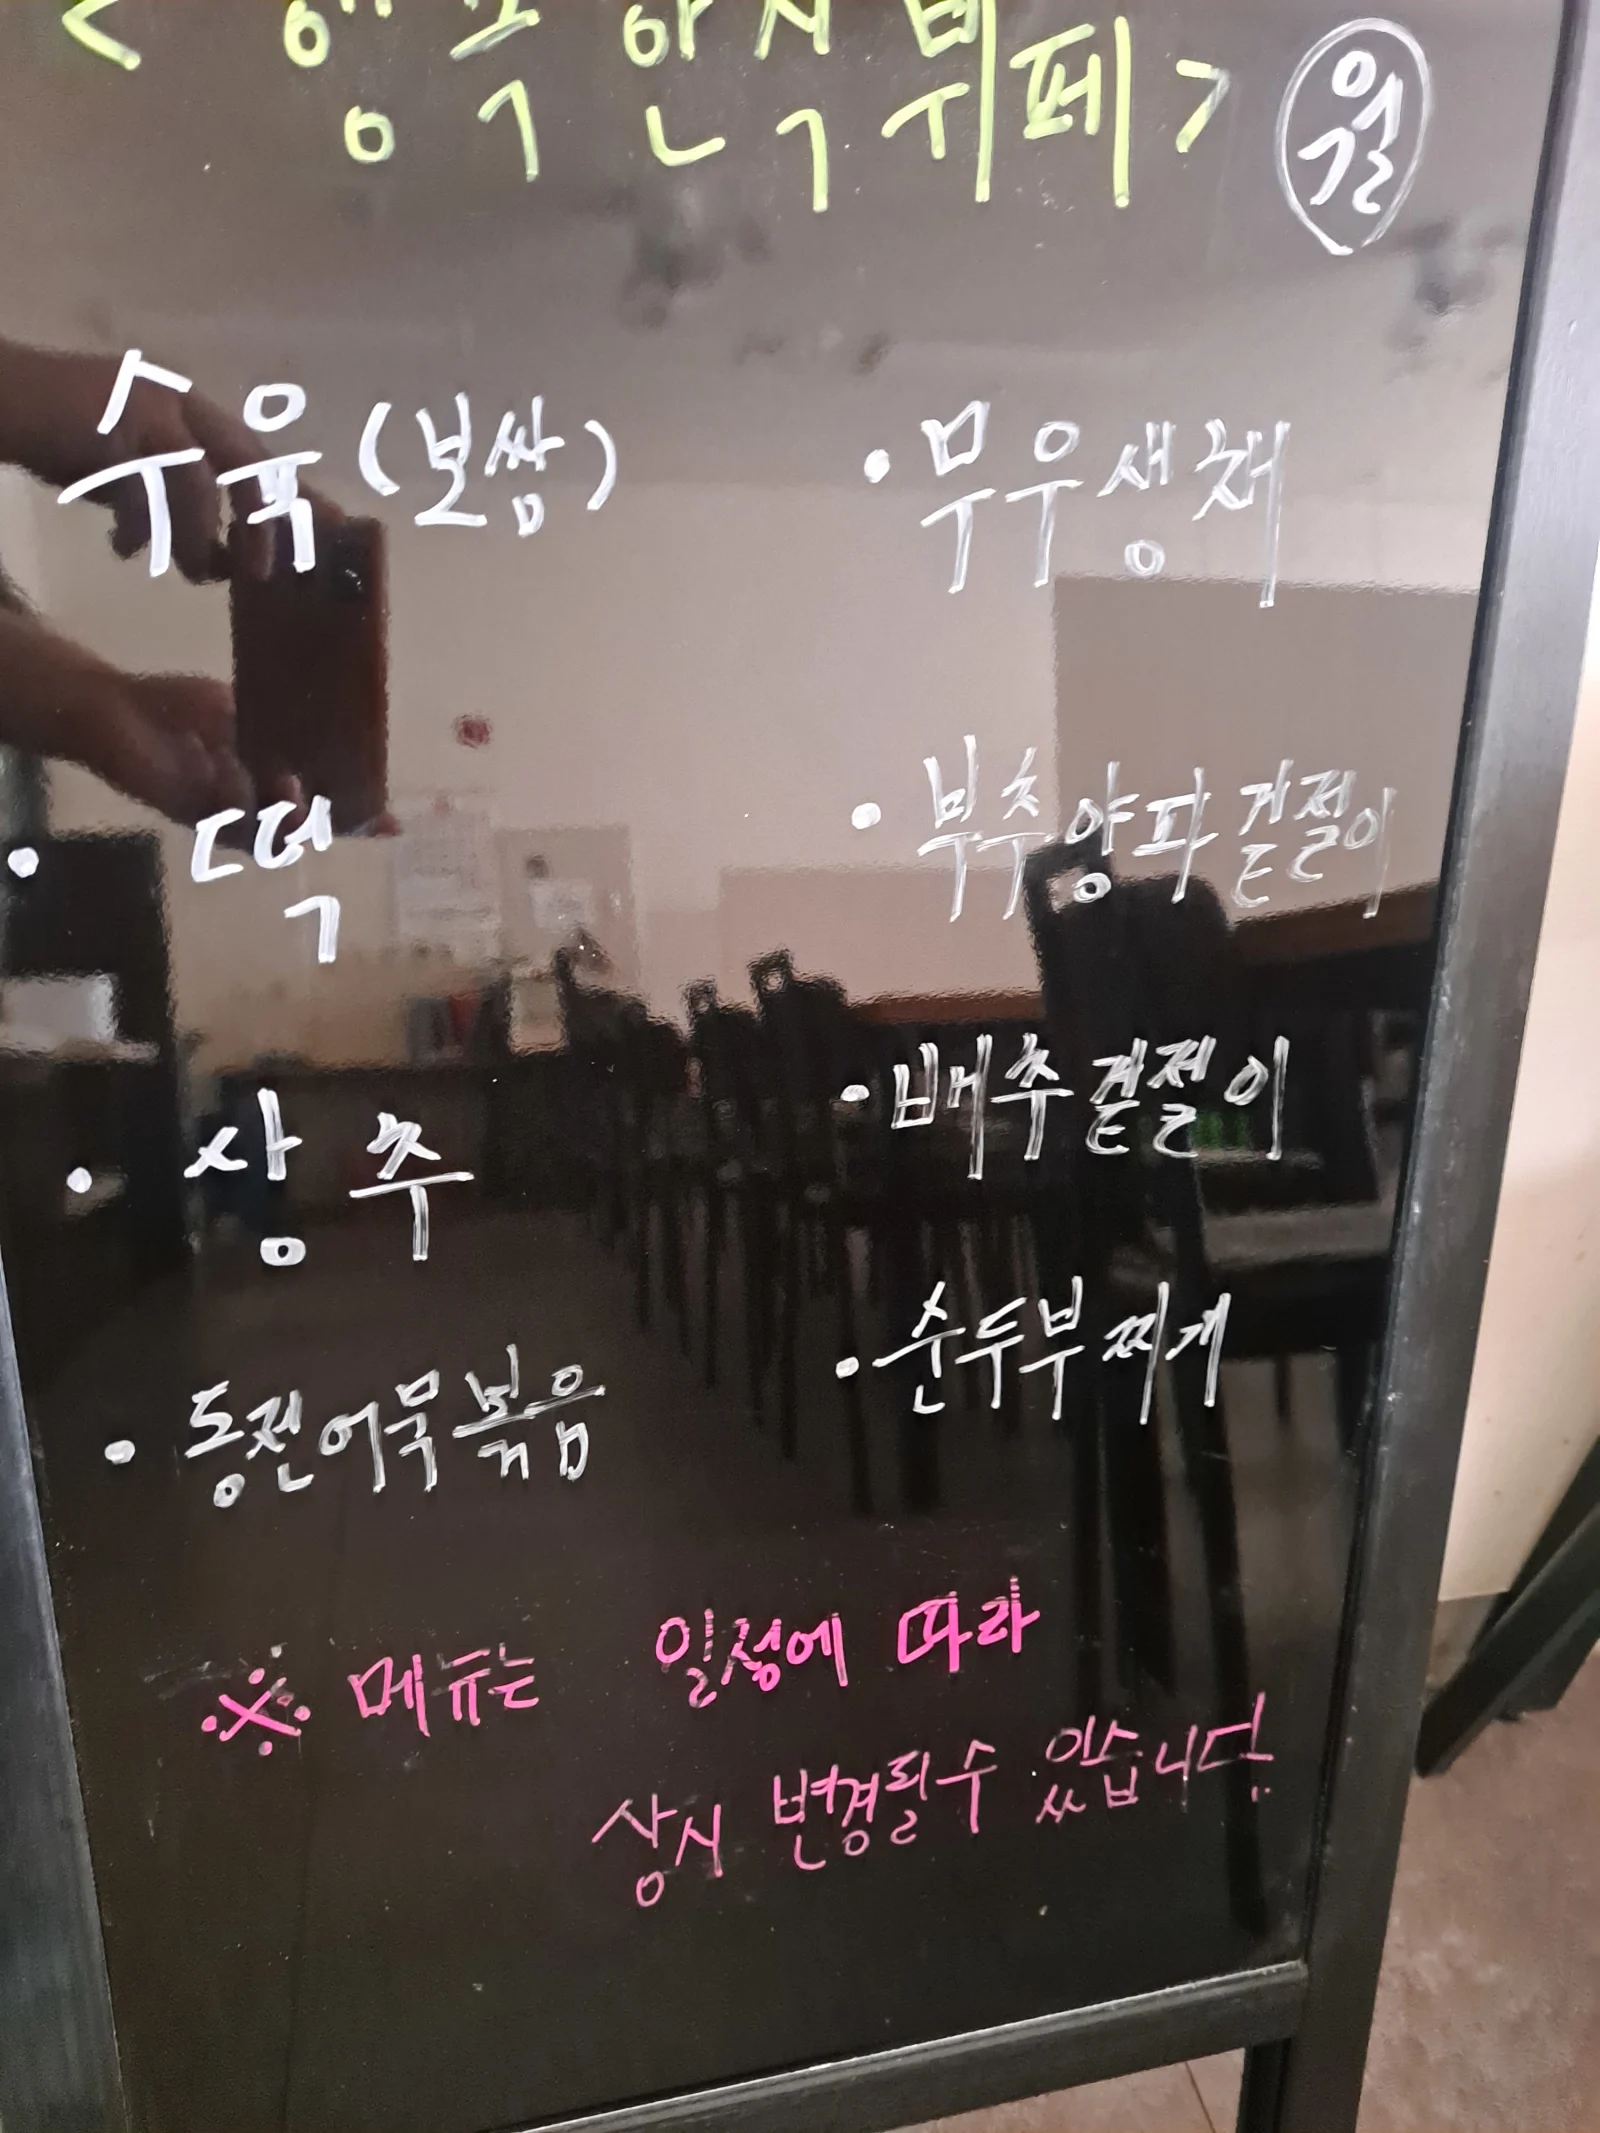 < 행복 한식 뷔페 > 월
수육(보쌈)
· 떡
· 상추
· 동전어묵볶음
· 무우생채
· 부추양파겉절이
· 배추겉절이
· 순두부찌개
※ 메뉴는 일정에 따라
상시 변경될수 있습니다.